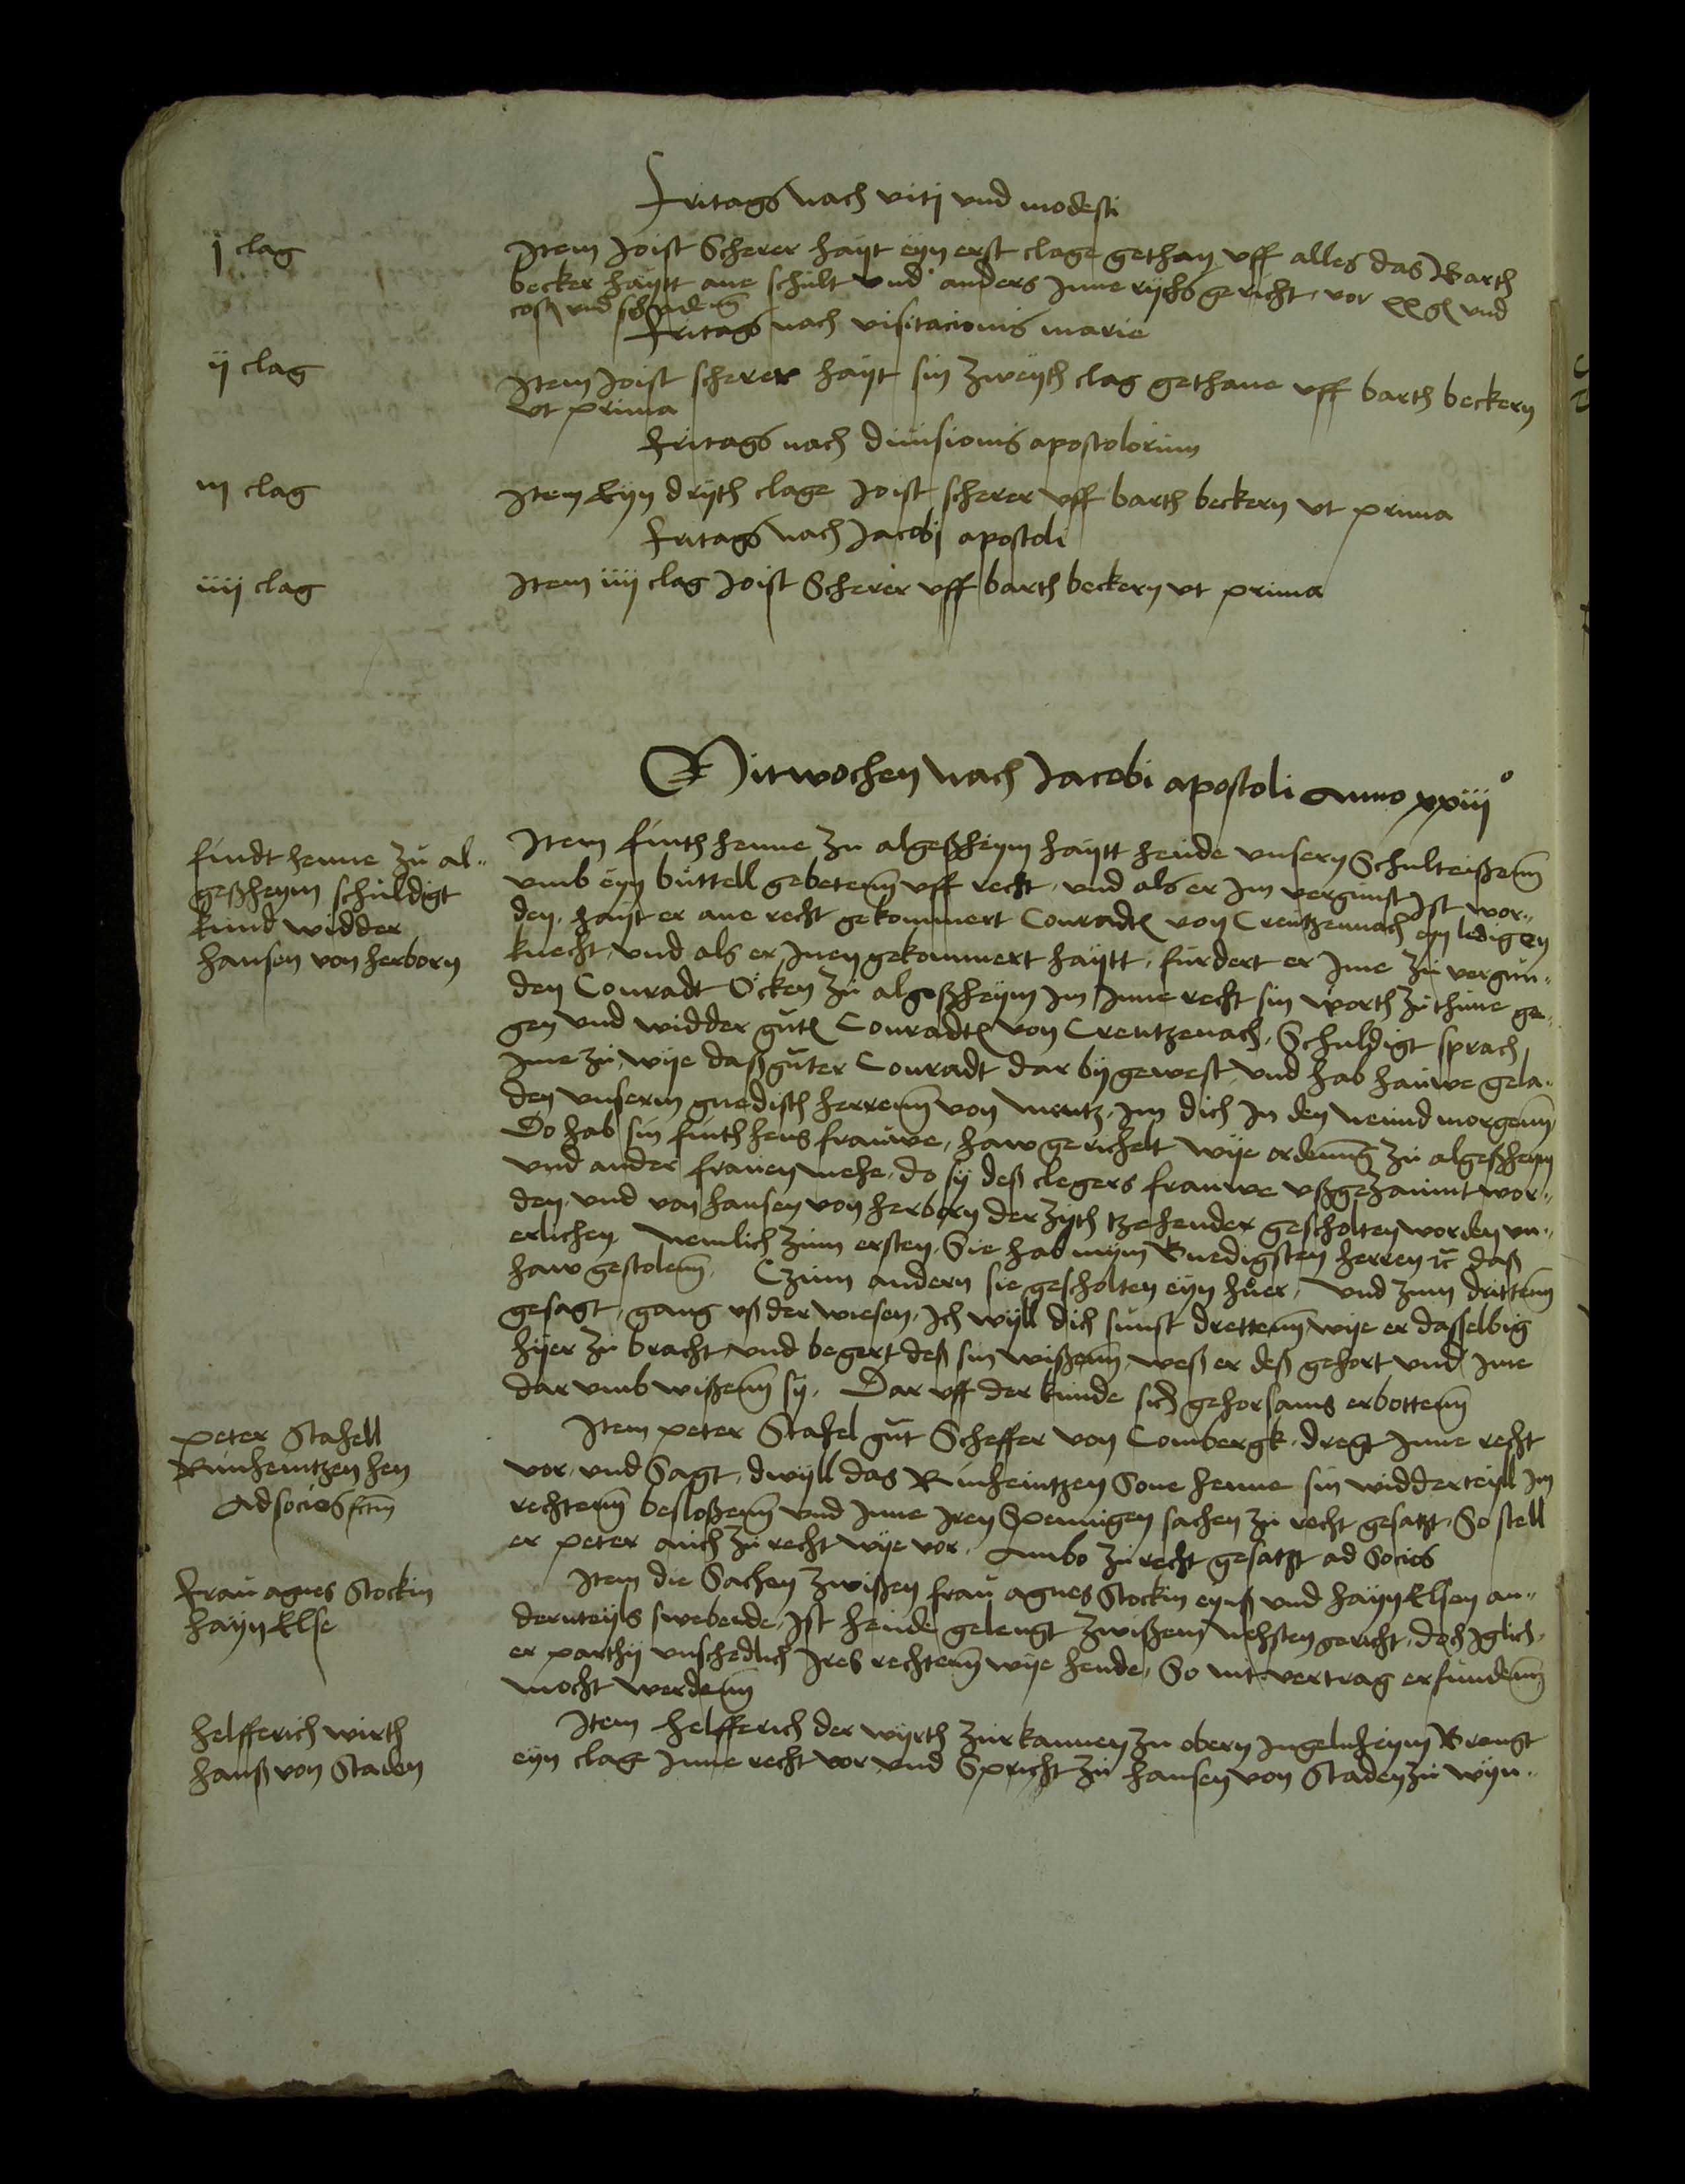 Fritags nach viti vnd modesti
j clag
Item Joist Scherer hayt eyn erst clage gethan vff alles das Barth
becker haytt ane schult vnd anders Inne rychs gericht vor xx gl vnd
cost vnd schadenn
Fritags nach visitacionis marie
ij clag
Item Joist scherer hayt sin zweyth clag gethane vff barth beckern
vt prima
Fritags nach diuisionis apostolorum
iij clag
Item Eyn dryth clage Joist scherer vff barth beckern vt prima
Fritags nach Jacobj apostoli
iiij clag
Item iiij clag Joist Scherer vff barth beckern vt prima
Mitwochen nach Jacobi apostoli Anno xxiij°
findt henne zu al„
geßheym schuldigt
kund widder
hansen von herborn
Item finth henne zu algeßheym haytt heude vnsern Schulteißenn
vmb eyn buttell gebetenn vff recht, vnd als er Im vergunst Ist wor„
den, hayt er ane recht gekommert Conradt von Creutzennach eyn ledigen
knecht, vnd als er Inen gekommert haytt, furdert er Ime zu vergun„
den Conradt Ocken zu algeßheym Im Inne recht sin worth zu thune ge„
gen vnd widder gute Conradt von Creutzenach, Schuldigt sprach
Ime zu, wye daß guter Conradt dar by gewest, vnd hab hauwe gela„
den vnserm gnedisth herrenn von mentz, Im dich In den neund morgenn
Do hab sin finth hens frauwe, haw gerichelt wye ordenung zu algeßheym
vnd ander frauen mehe, do sy deß clegers frauwe vßgezaunt wor„
den, vnd von hansen von herborn der zyth tzehender gescholten worden vn„
erlichen, Nemlich zum ersten, Sie hab mym Gnedigsten herren etc daß
haw gestolenn, Czum andern sie gescholten eyn huer, vnd zum drittenn
gesagt, gang vß der wiesen, Ich wyll dich sunst drettenn, wye er dasselbig
hyer zu bracht, vnd begert deß sin wißenn, weß er deß gehort vnd Ime
dar vmb wißenn sy, Dar vff der kunde sich gehorsams erbottenn
peter Stahell
Rinheintzen hen
Ad socios
Item peter Stahel gut Scheffer von Combergk, dregt Inne recht
vor, vnd Sagt, dwyll das Rinheintzen Sone henne sin widderteyll Im
rechtenn besloßenn vnd Inne Iren Spennigen sachen zu recht gesatzt, So stell
er peter auch zu recht wye vor, Ambo zu recht gesatzt ad Socios
Frau agnes Stockin
hayn Else
Item die Sachen zwißen frau agnes Stockin eynß vnd hayn Elsen an„
dernteyls swebende, Ist heude gelengt zwißem nehsten gericht, doch Iglich„
er parthy vnschedlich Ires rechtenn wye heude, So nit vertrag erfundenn
mocht werdenn
helfferich wirth
hanß von Staden
Item helfferich der wyrth zur kannen zu obern Ingelnheym Brengt
eyn clage Inne recht vor vnd Spricht zu hansen von Staden zu wyn„